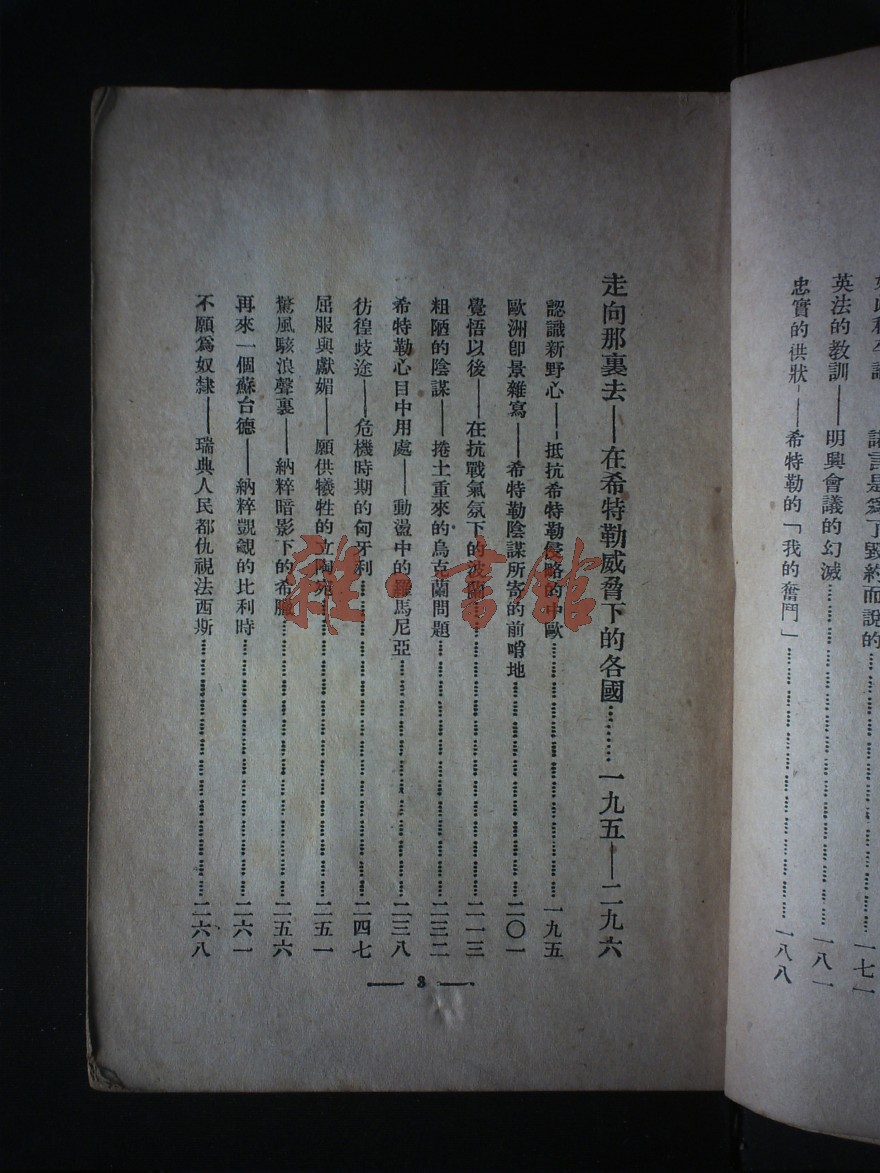 讕言是爲了毀約而說的………一七一
英法的教訓——明興會議的幻滅………一八一
忠實的供狀——希特勒的「我的奮鬥」………一八八
走向那裏去——在希特勒威脅下的各國………一九五——二九六
認識新野心——抵抗希特勒侵略的中歐………一九五
歐洲卽景雜寫——希特勒陰謀所寄的前哨地………二〇一
覺悟以後——在抗戰氣氛下的波蘭………二一三
粗陋的陰謀——捲土重來的烏克蘭問題………二三二
希特勒心目中用處——動盪中的羅馬尼亞………二三八
彷徨歧途——危機時期的匈牙利………二四七
屈服與獻媚——願供犧牲的立陶宛………二五一
驚風駭浪聲裏——納粹暗影下的希臘………二五六
再來一個蘇台德——納粹覬覦的比利時………二六一
不願爲奴隸——瑞典人民都仇視法西斯………二六八
— 3 —
雜·書館